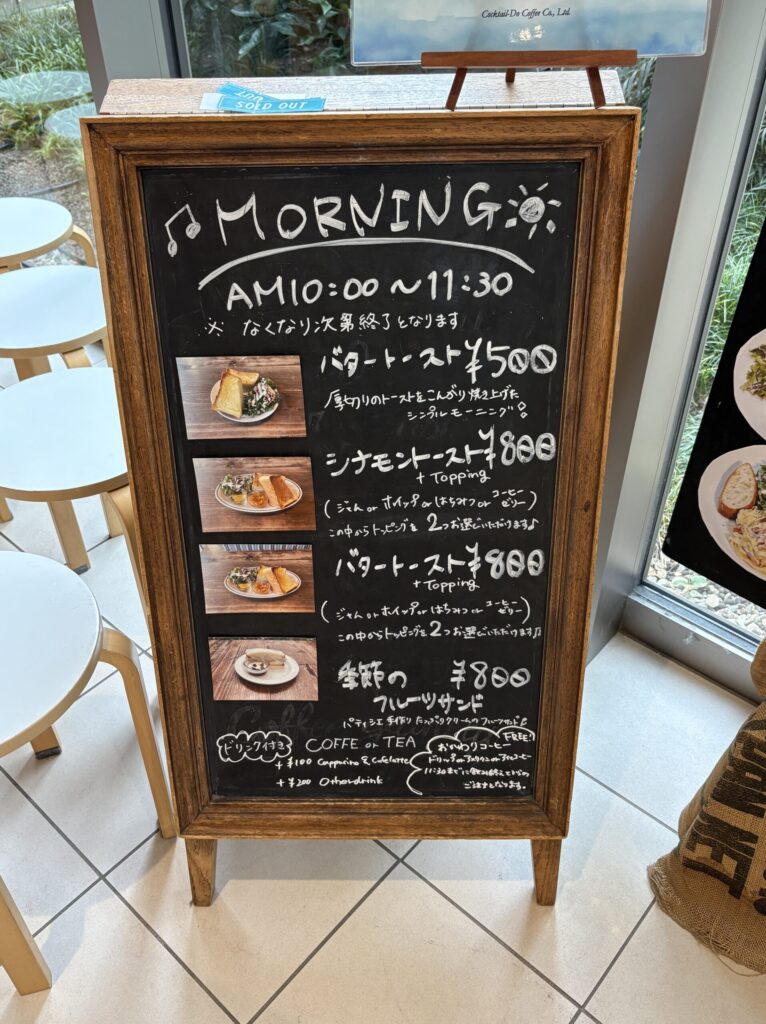 Cocktail-Do Coffee Co., Ltd.
OUT
SOLD OUT
♪MORNING
AM10:00〜11:30
※ なくなり次第終了となります
バタートースト ¥500
厚切りのトーストをこんがり焼き上げた
シンプルモーニング!
シナモントースト ¥800
+ Topping
(ジャム or ホイップ or はちみつ or コーヒーゼリー)
この中からトッピングを2つお選びいただけます♪
バタートースト ¥800
+ Topping
(ジャム or ホイップ or はちみつ or コーヒーゼリー)
この中からトッピングを2つお選びいただけます♫
季節の ¥800
フルーツサンド
パティシエ手作り たっぷりクリームのフルーツサンド
ドリンク付き COFFE or TEA
+ ¥100 Cappucino & Cafelatte
+ ¥200 Other drink
FREE!
おかわりコーヒー
ドリップ or アメリカン or アイスコーヒー
ご注文となります。